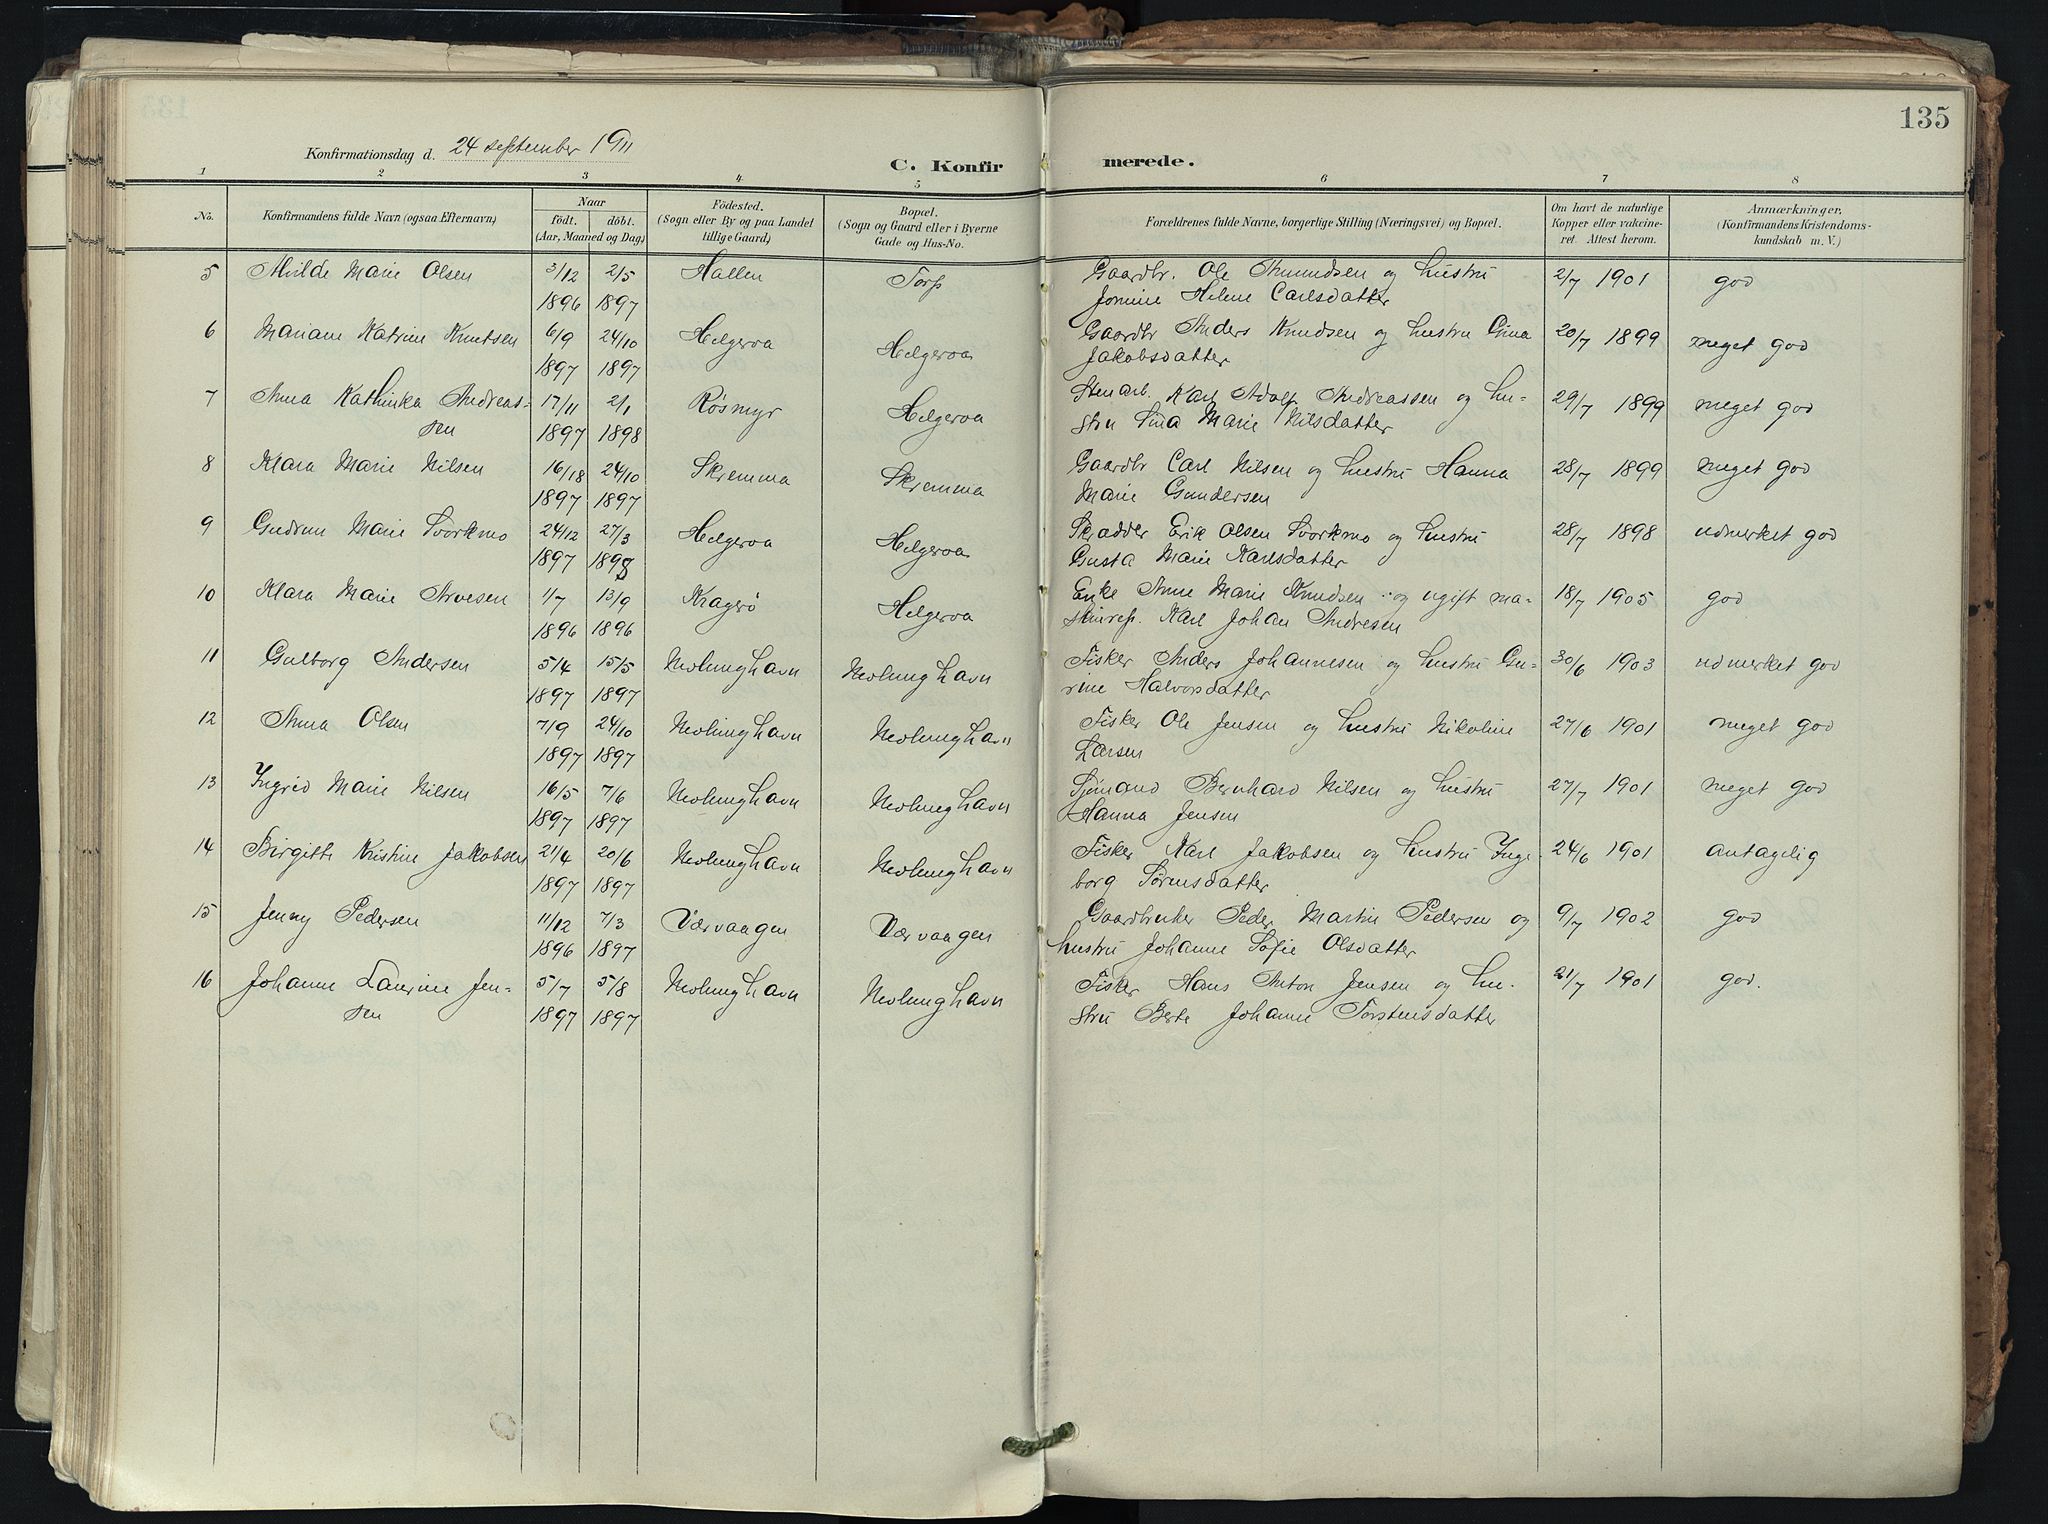 135
Konfirmationsdag d. 24 september 1911
C. Konfirmerede.
1 2 3 4 5 6 7 8
No. Konfirmandens fulde Navn (ogsaa Efternavn) Naar födt. döbt. (Aar, Maaned og Dag) Födested. (Sogn eller By og paa Landet tillige Gaard) Bopæl. (Sogn og Gaard eller i Byerne Gade og Hus-No. Forældrenes fulde Navne, borgerlige Stilling (Næringsvei) og Bopæl. Om havt de naturlige Kopper eller vakcineret. Attest herom. Anmærkninger. (Konfirmandens Kristendomskundskab m. V.)
5 Milde Marie Olsen 3/12 2/5 Hallen Torp Gaardbr. Ole Amundsen og hustru 2/7 1901 god
1896 1897 Helene Carlsdatter
6 Mariane Katrine Knutsen 6/9 24/10 Helgeroa Helgeroa Gaardbr Anders Knudsen og hustru Gina 20/7 1899 meget god
1897 1897 Jakobsdatter
7 Anna Kathinka Andreas- 17/11 2/1 Røsmyr Helgeroa Stenarb. Karl Adolf Andreassen og hu- 29/7 1899 meget god
sen 1897 1898 stru Sina Marie Nilsdatter
8 Klara Marie Nilsen 16/18 24/10 Skremma Skremma Gaardbr Carl Nilsen og hustru Hanna 28/7 1899 meget god
1897 1897 Marie Gundersen
9 Gudrun Marie Svorkmo 24/12 27/3 Helgeroa Helgeroa Skrædder Erik Olsen Svorkmo og hustru 28/7 1898 udmerket god
1897 1898 Gusta Marie Karlsdatter
10 Klara Marie Arvesen 1/7 13/9 Kragerø Helgeroa Enke Anne Marie Knudsen og ugift ma- 18/7 1905 god
1896 1896 skinrep. Karl Johan Andresen
11 Gulborg Andersen 5/4 15/5 Nevlunghavn Nevlunghavn Fisker Anders Johannesen og hustru Gu- 30/6 1903 udmerket god
1897 1897 rine Halvorsdatter
12 Anna Olsen 7/9 24/10 Nevlunghavn Nevlunghavn Fisker Ole Jensen og hustru Nikoline 27/6 1901 meget god
1897 1897 Larsen
13 Ingrid Marie Nilsen 16/5 7/6 Nevlunghavn Nevlunghavn Sjømand Bernhard Nilsen og hustru 27/7 1901 meget god
1897 1897 Hanna Jensen
14 Birgitte Kristine Jakobsen 21/4 20/6 Nevlunghavn Nevlunghavn Fisker Karl Jakobsen og hustru Inge- 24/6 1901 antagelig
1897 1897 borg Sørensdatter
15 Jenny Pedersen 11/12 7/3 Værvaagen Værvaagen Gaardbruker Peder Martin Pedersen og 9/7 1902 god
1896 1897 hustru Johanne Sofie Olsdatter
16 Johanne Laurine Jen- 5/7 5/8 Nevlunghavn Nevlunghavn Fisker Hans Anton Jensen og hu- 21/7 1901 god.
sen 1897 1897 stru Berte Johanne Torstensdatter